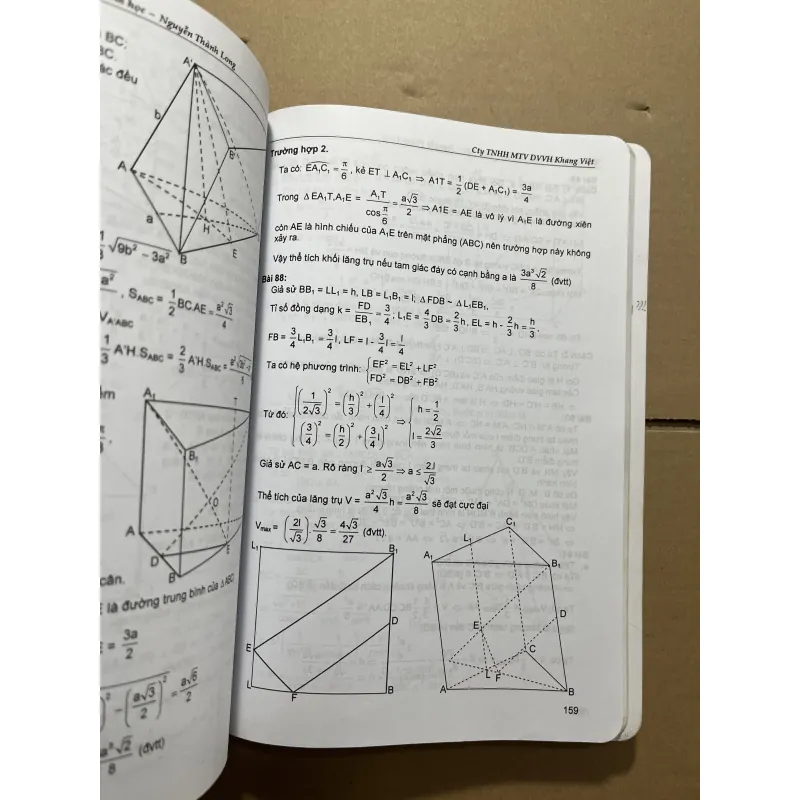 học – Nguyễn Thành Long
BC;
BC.
ác đều
A'
b
B'
A
a
H
B
E
√9b² − 3a²
, S_ABC = 1/2 BC.AE = a²√3/4
V_A'ABC
1/3 A'H.S_ABC = 2/3 A'H.S_ABC
A₁
T
B₁
O
A
D
E
B
cân.
là đường trung bình của Δ ABD
= 3a/2
− (a√3/2)² = a√6/2
a³√2/8 (đvtt)
Cty TNHH MTV DVVH Khang Việt
Trường hợp 2.
Ta có: EA₁C₁ = π/6, kẻ ET ⊥ A₁C₁ ⇒ A1T = 1/2 (DE + A₁C₁) = 3a/4
Trong Δ EA₁T,A₁E = A₁T/cos π/6 = a√3/2 ⇒ A1E = AE là vô lý vì A₁E là đường xiên
còn AE là hình chiếu của A₁E trên mặt phẳng (ABC) nên trường hợp này không
xảy ra.
Vậy thể tích khối lăng trụ nếu tam giác đáy có cạnh bằng a là 3a³√2/8 (đvtt)
Bài 88:
Giả sử BB₁ = LL₁ = h, LB = L₁B₁ = l; Δ FDB ~ Δ L₁EB₁,
Tỉ số đồng dạng k = FD/EB₁ = 3/4; L₁E = 4/3 DB = 2/3 h, EL = h - 2/3 h = h/3,
FB = 3/4 L₁B₁ = 3/4 l, LF = l - 3/4 l = l/4
Ta có hệ phương trình: { EF² = EL² + LF²
FD² = DB² + FB²
Từ đó: { (1/2√3)² = (h/3)² + (l/4)² ⇒ { h = 1/2
(3/4)² = (h/2)² + (3/4 l)² l = 2√2/3
Giả sử AC = a. Rõ ràng l ≥ a√3/2 ⇒ a ≤ 2l/√3
Thể tích của lăng trụ V = a²√3/4 h = a²√3/8 sẽ đạt cực đại
V_max = (2l/√3).√3/8 = 4√3/27 (đvtt).
L₁
B₁
D
E
L
F
B
C₁
L₁
A₁
B₁
D
E
C
L
F
A
B
159